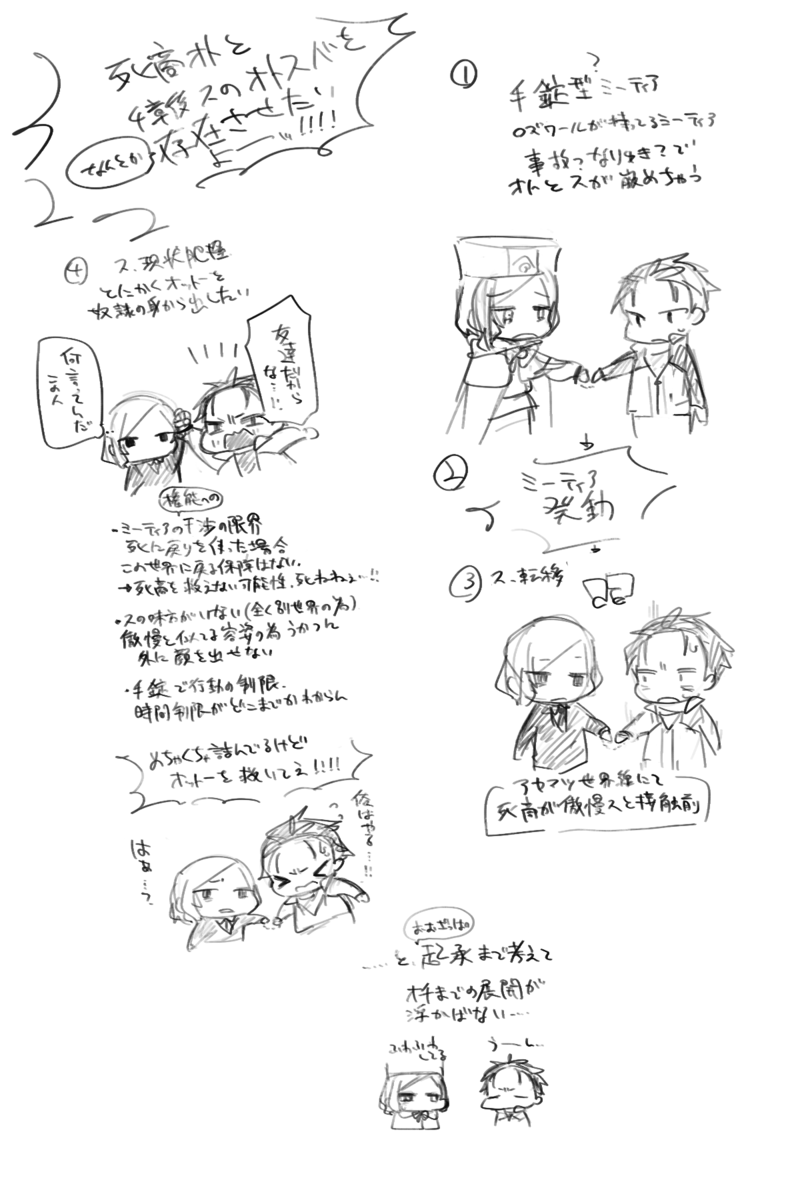 死商オトと
4章後スのオトスバを
なんとか
好き好きさせたい
よーッ!!!!
①
?
手錠型ミーティア
ロズワールが持ってるミーティア
事故?なりゆき?で
オトとスが嵌めちゃう
②
ミーティア
発動
③ ス、転移
アヤマツ世界線にて
死商が傲慢スと接触前
④
ス、現状把握
とにかくオットーを
奴隷の身から出したい
友達だから
な…!!
何言ってんだ
この人
権能への
・ミーティアの干渉の限界
死に戻りを使った場合
この世界に戻る保障はない
→死商を救えない可能性、死ねねぇ…!!
・スの味方がいない(全く別世界の為)
傲慢と似てる容姿の為うかつに
外に顔を出せない
・手錠で行動の制限、
時間制限がどこまでかわからん
めちゃくちゃ詰んでるけど
オットーを救いてえ!!!!
俺はやる…!!
はぁ…?
おおざっぱの
……と、起承まで考えて
オチまでの展開が
浮かばない……
ふわふわ
してる
うーん…